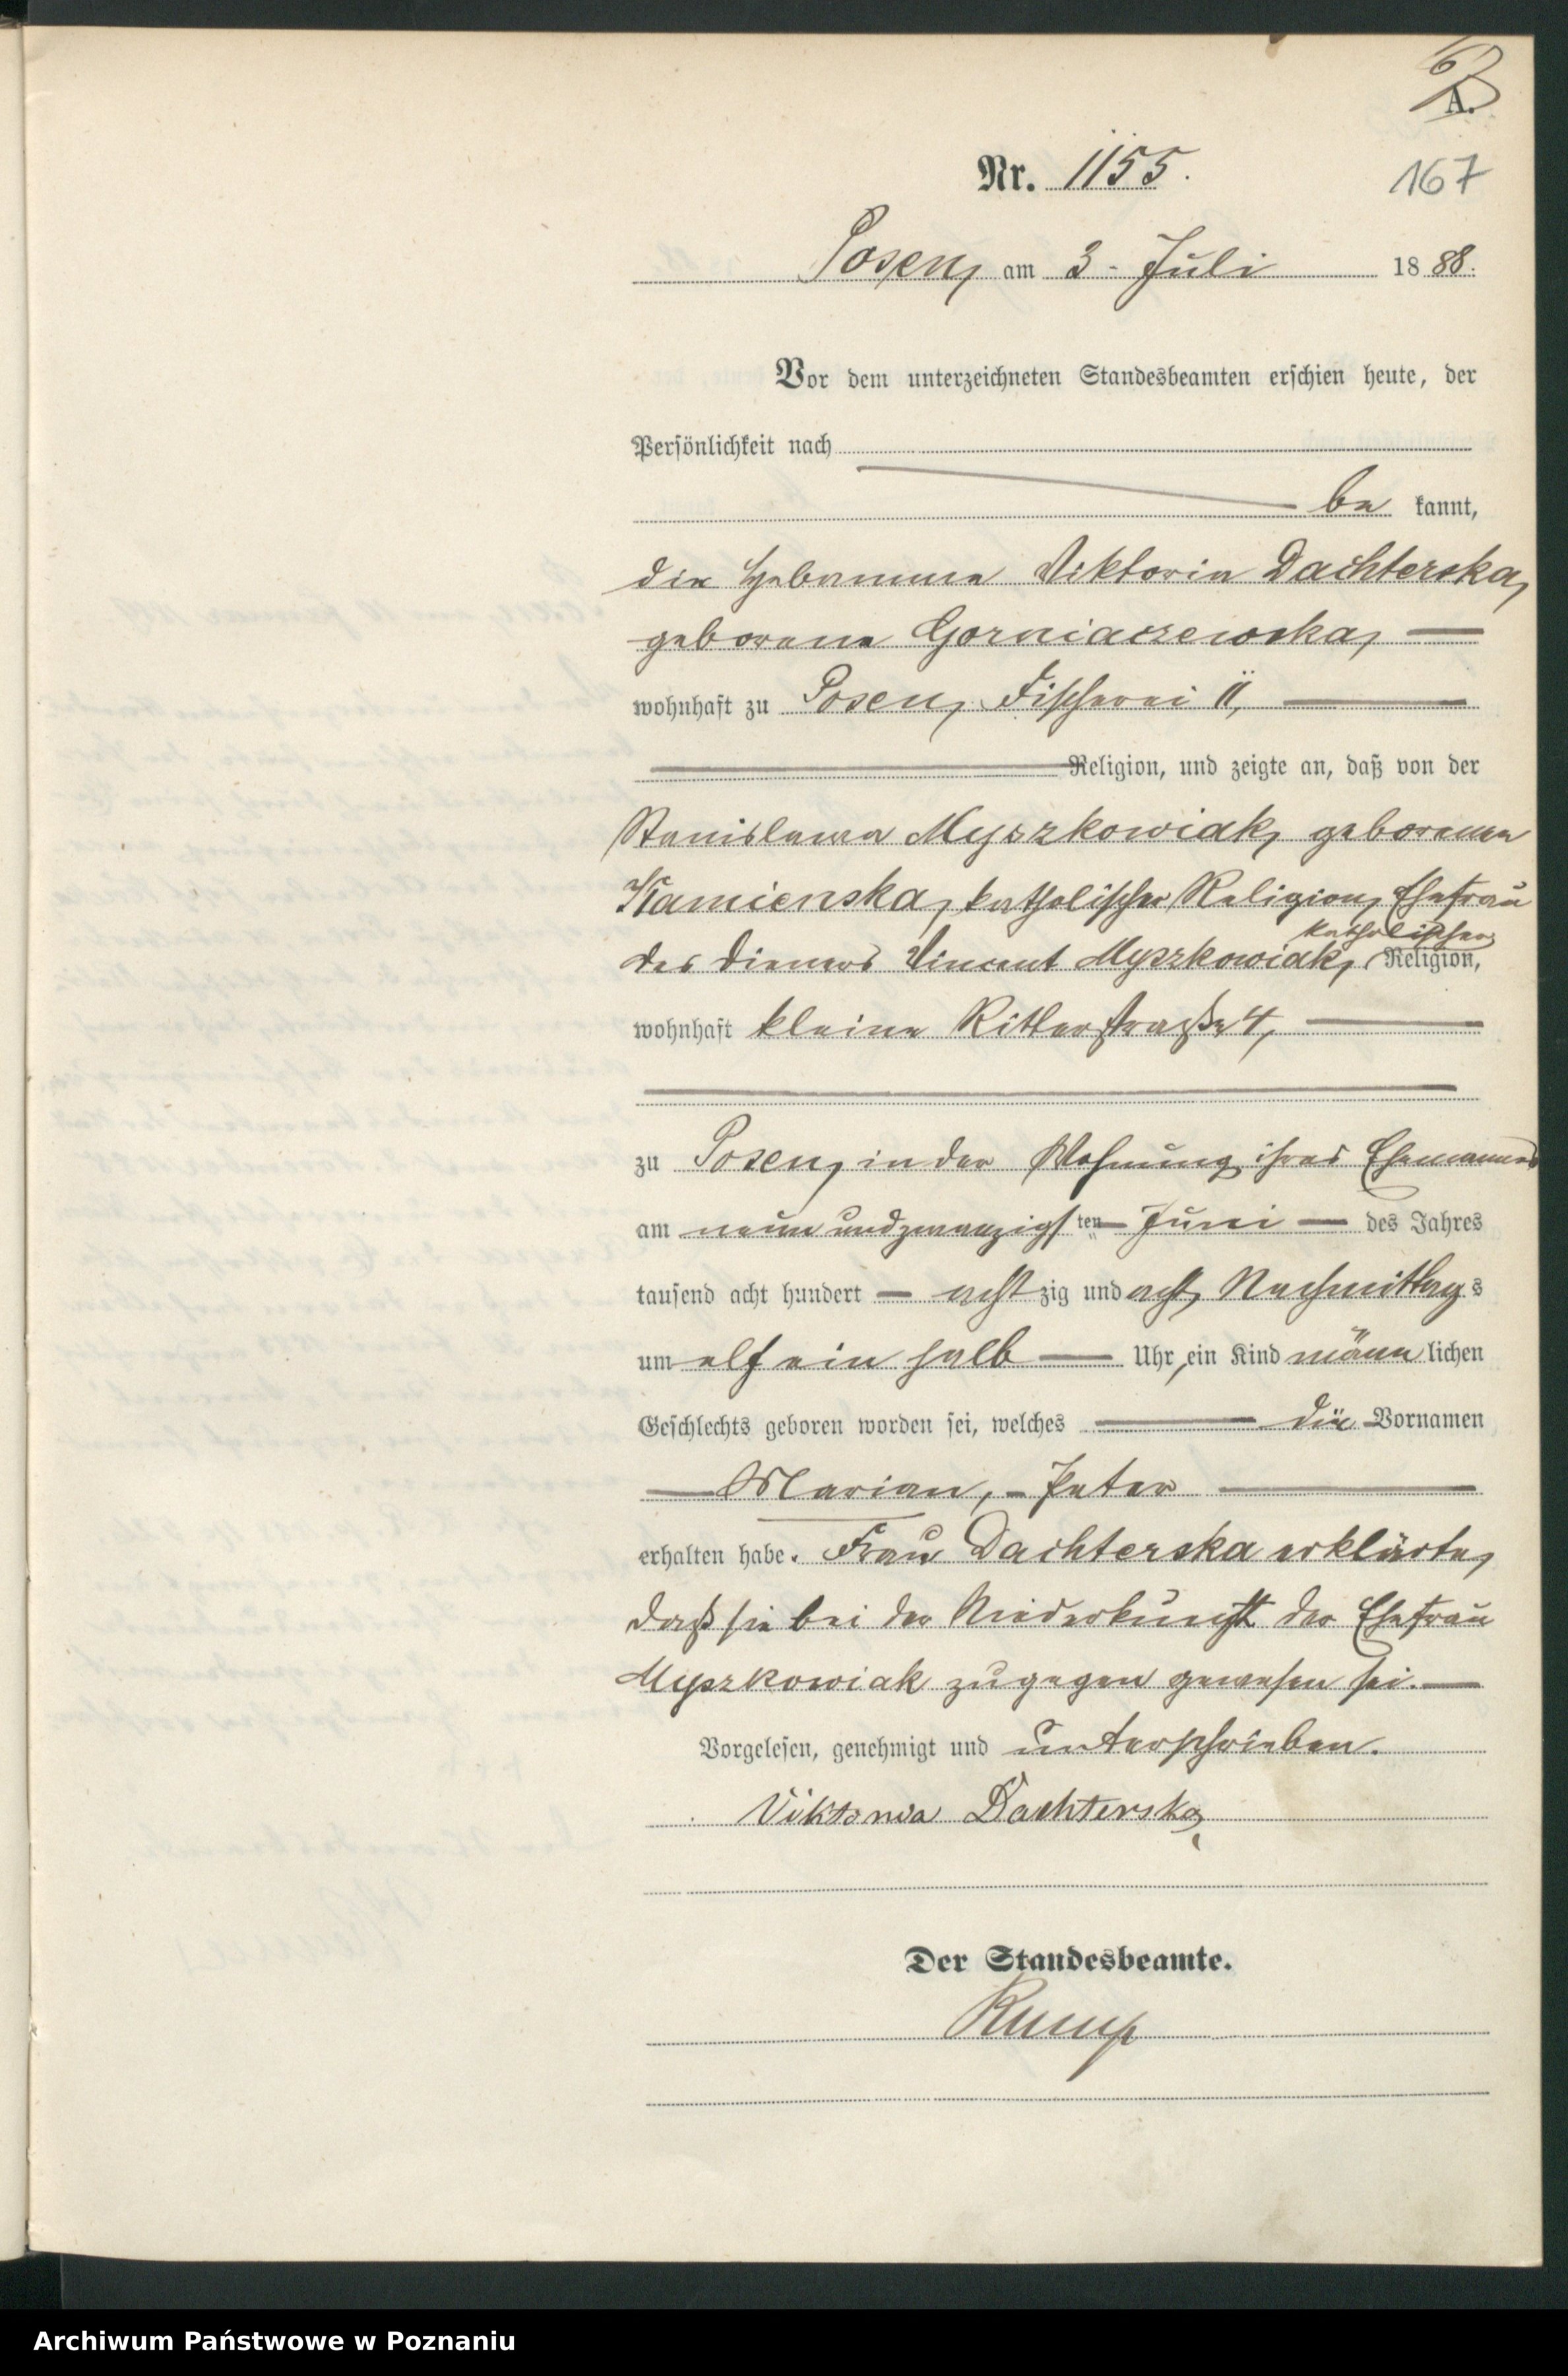 A.
Nr. 1155.
167
Posen, am 3. Juli 1888.
Vor dem unterzeichneten Standesbeamten erschien heute, der
Persönlichkeit nach
be kannt,
die Hebamme Viktoria Dachterska,
geborene Gorniaczewska,
wohnhaft zu Posen, Fischerei 11,
Religion, und zeigte an, daß von der
Stanislawa Myszkowiak, geborenen
Kamienska, katholischer Religion, Ehefrau
des Dieners Vincent Myszkowiak, katholischer Religion,
wohnhaft kleine Ritterstraße 4,
zu Posen, in der Wohnung ihres Ehemannes
am neun und zwanzigsten Juni des Jahres
tausend acht hundert acht zig und acht, Nachmittags
um elf ein halb Uhr, ein Kind männlichen
Geschlechts geboren worden sei, welches die Vornamen
Marian, - Peter
erhalten habe. Frau Dachterska erklärte,
daß sie bei der Niederkunft der Ehefrau
Myszkowiak zugegen gewesen sei.
Vorgelesen, genehmigt und unterschrieben.
Viktoria Dachterska
Der Standesbeamte.
Rump
Archiwum Państwowe w Poznaniu